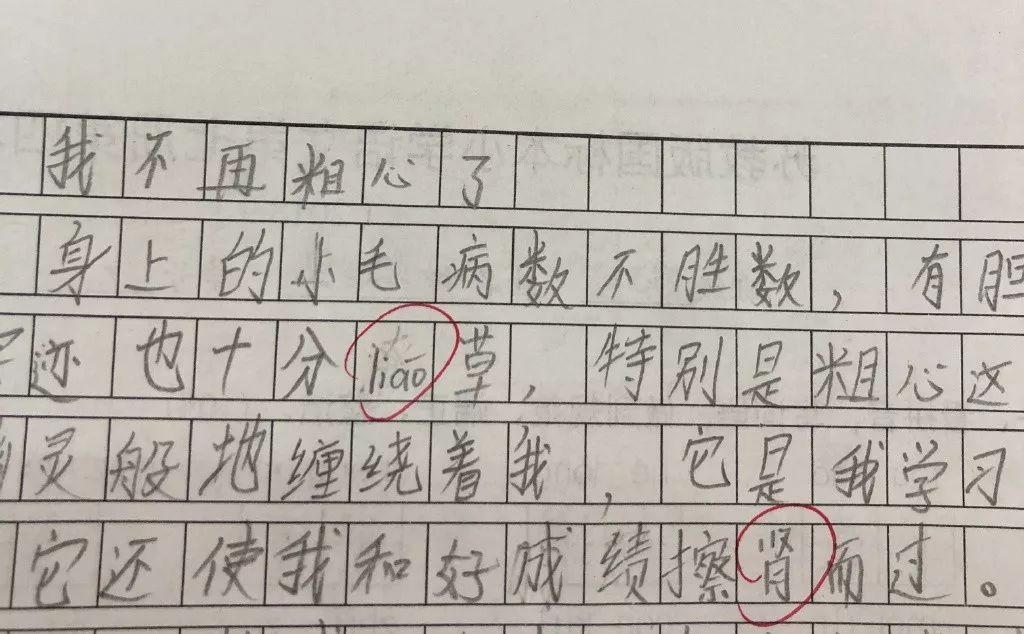 我不再粗心了
身上的小毛病数不胜数，有胆
迹也十分liǎo草，特别是粗心这
灵般地缠绕着我，它是我学习
它还使我和好成绩擦肾而过。